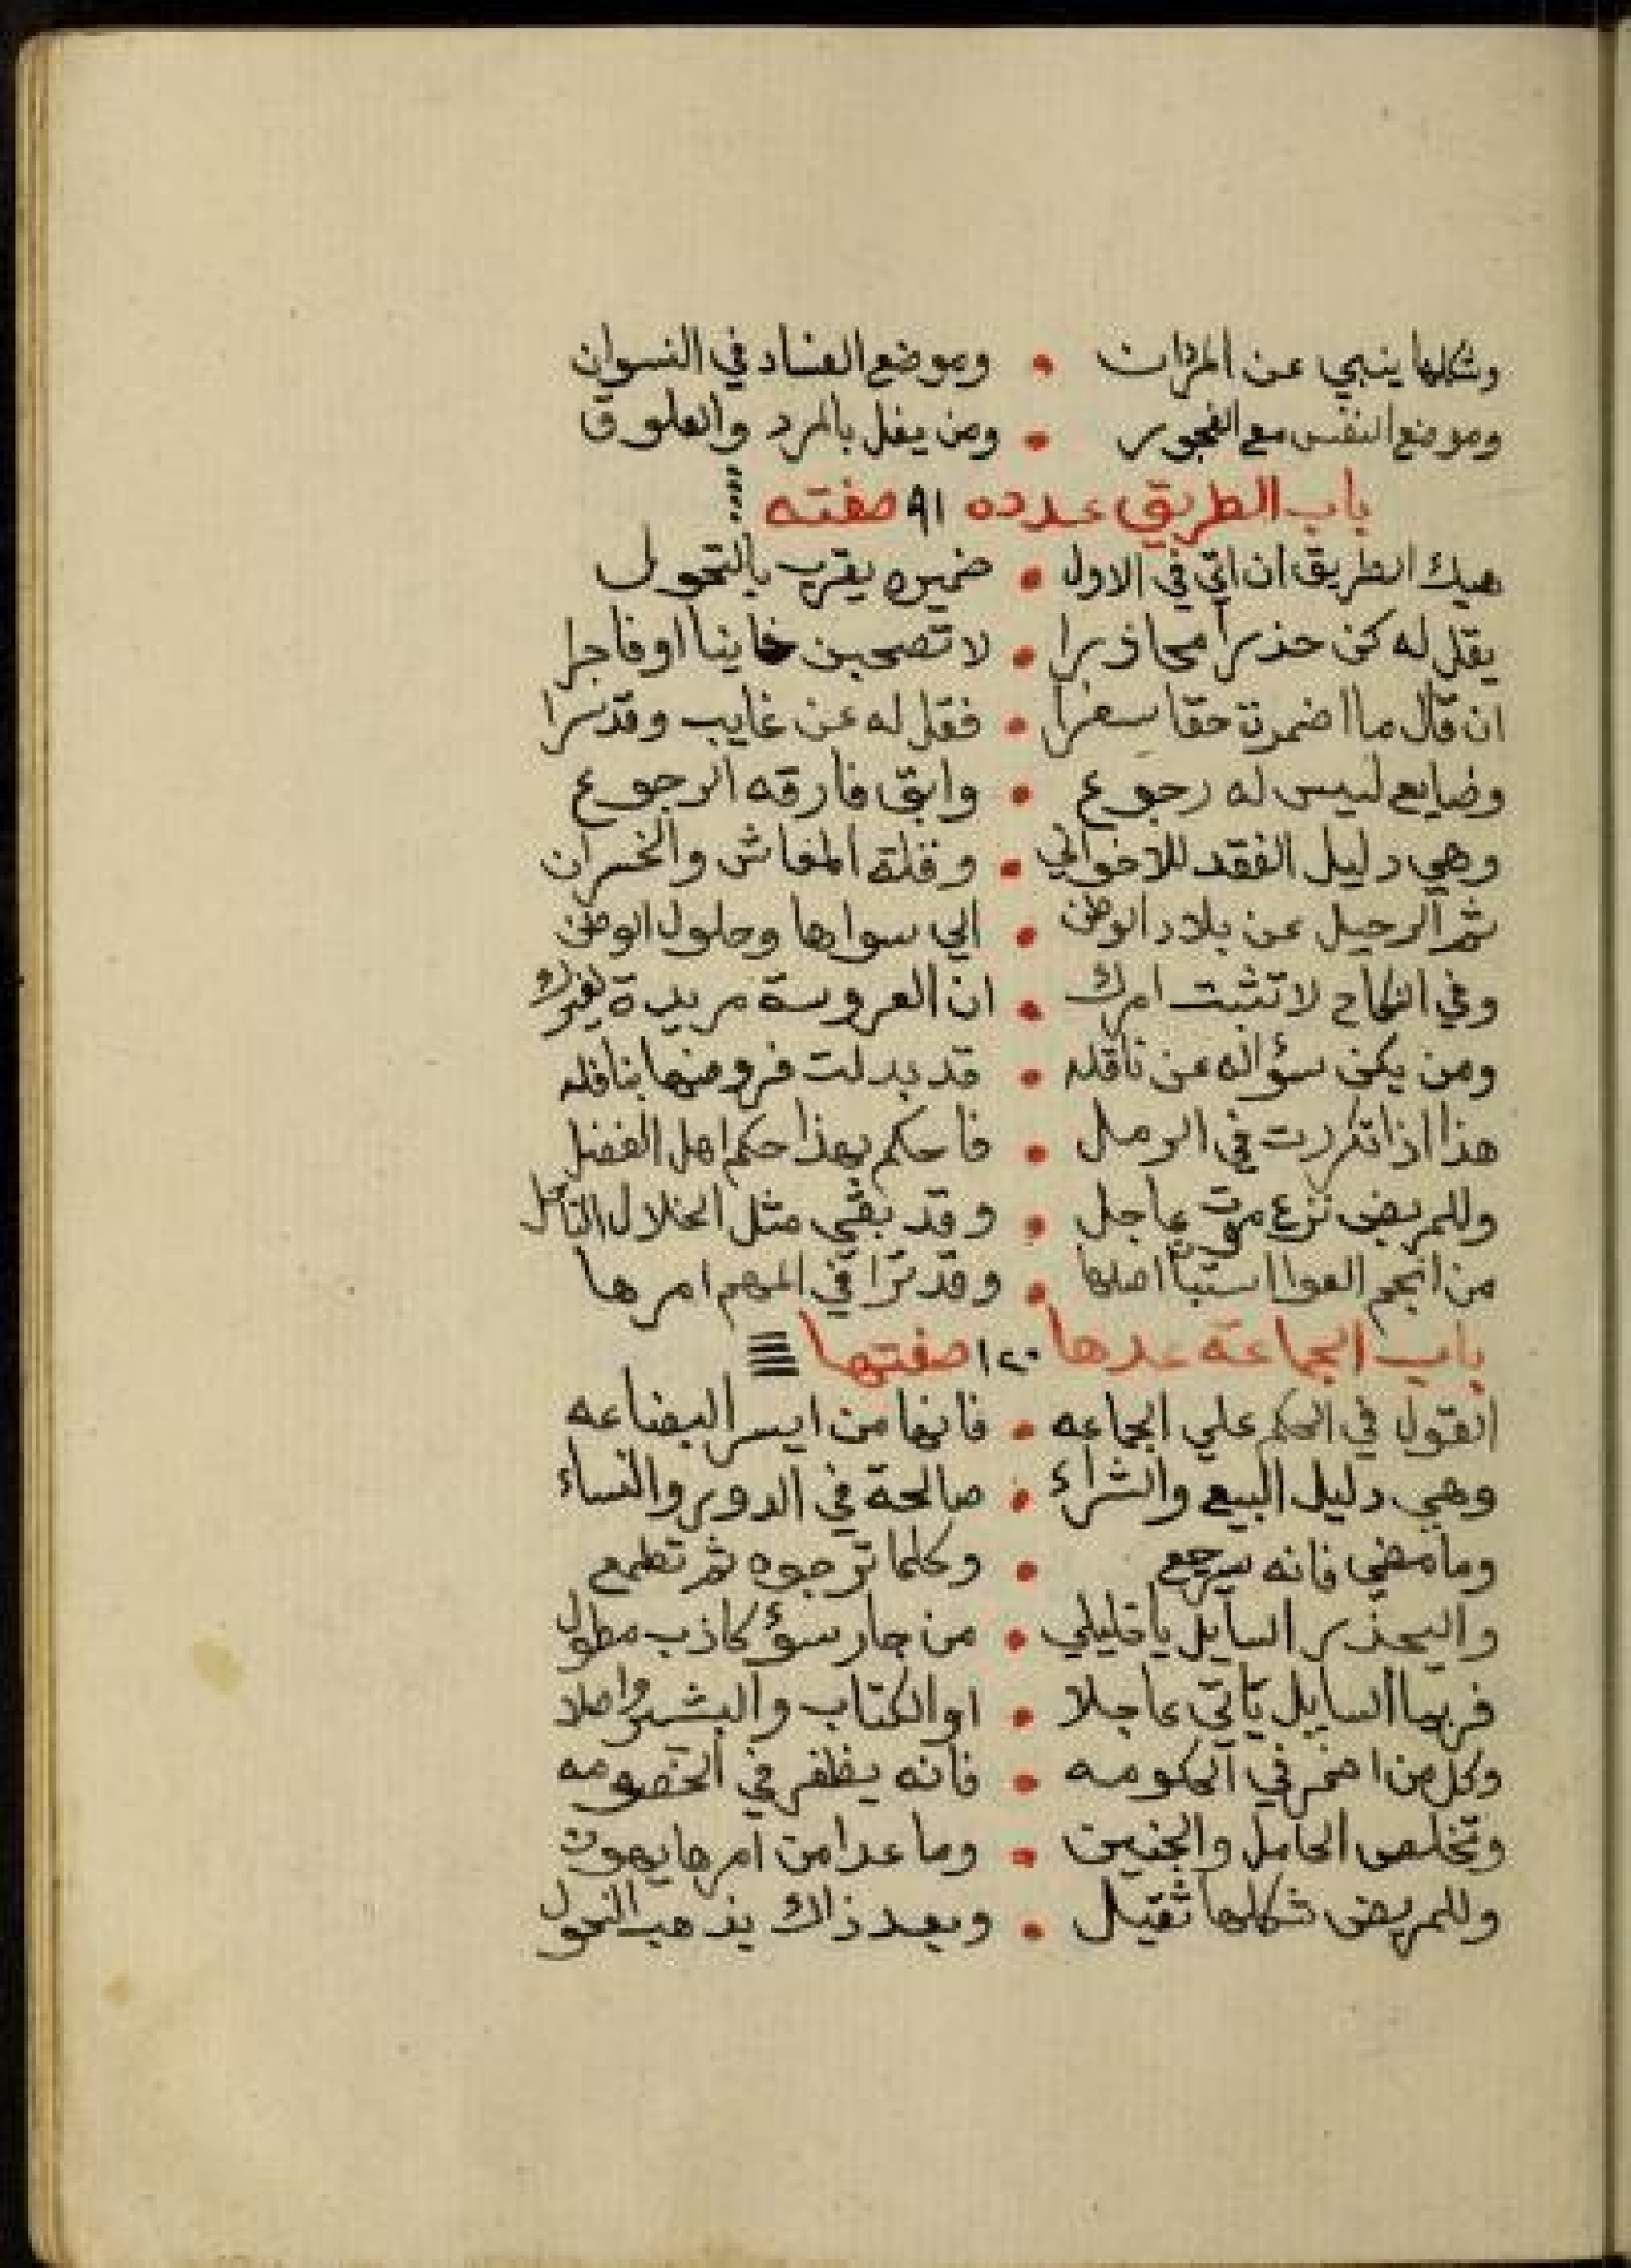 وشكلها ينبي عن المزان • وموضع الفساد في النسوان
وموضع النفس مع الفجور • ومن يفل بالمرد والعلوق
باب الطريق عدده ٩١ صفته
هيك الطريق ان اتي في الاول • ضميره يقرب بالتحول
يقل له كن حذرا محاذرا • لا تصحبن خاينا او فاجرا
ان قال ما اضمرت حقا سفرا • فقل له عن غايب وقد ترا
وضايع ليس له رجوع • وابق فارقه الرجوع
وهي دليل الفقد للاخوالي • وقلة المعاش والخسران
ثم الرحيل عن بلاد الوطن • الي سواها وحلول الوطن
وفي النكاح لا تثبت امرك • ان العروسة مريدة لغيرك
ومن يكن سؤاله عن ناقله • قد بدلت فروضها بنافله
هذا اذا تكررت في الرمل • فاحكم بهذا حكم اهل الفضل
وللمريض نزع موت عاجل • وقد بقي مثل الخلال الناحل
من انجم الهوا استبا اصلها • وقد ترا في المهم امرها
باب الجماعة عدها ١٢٠ صفتها
القول في الحكم علي الجماعه • فانها من ايسر البضاعه
وهي دليل البيع والشراء • صالحة في الدور والنساء
وما مضي فانه سيرجع • وكلما ترجوه ثم تطمع
واليحذر السايل يا خليلي • من جار سوء كاذب مطول
فربما السايل يأتي عاجلا • او الكتاب والبشير واصلا
وكل من اضمر في الحكومه • فانه يظفر في الخصومه
وتخلص الحامل والجنين • وما عدا من امرها يهون
وللمريض شكلها ثقيل • وبعد ذاك يذهب النحول